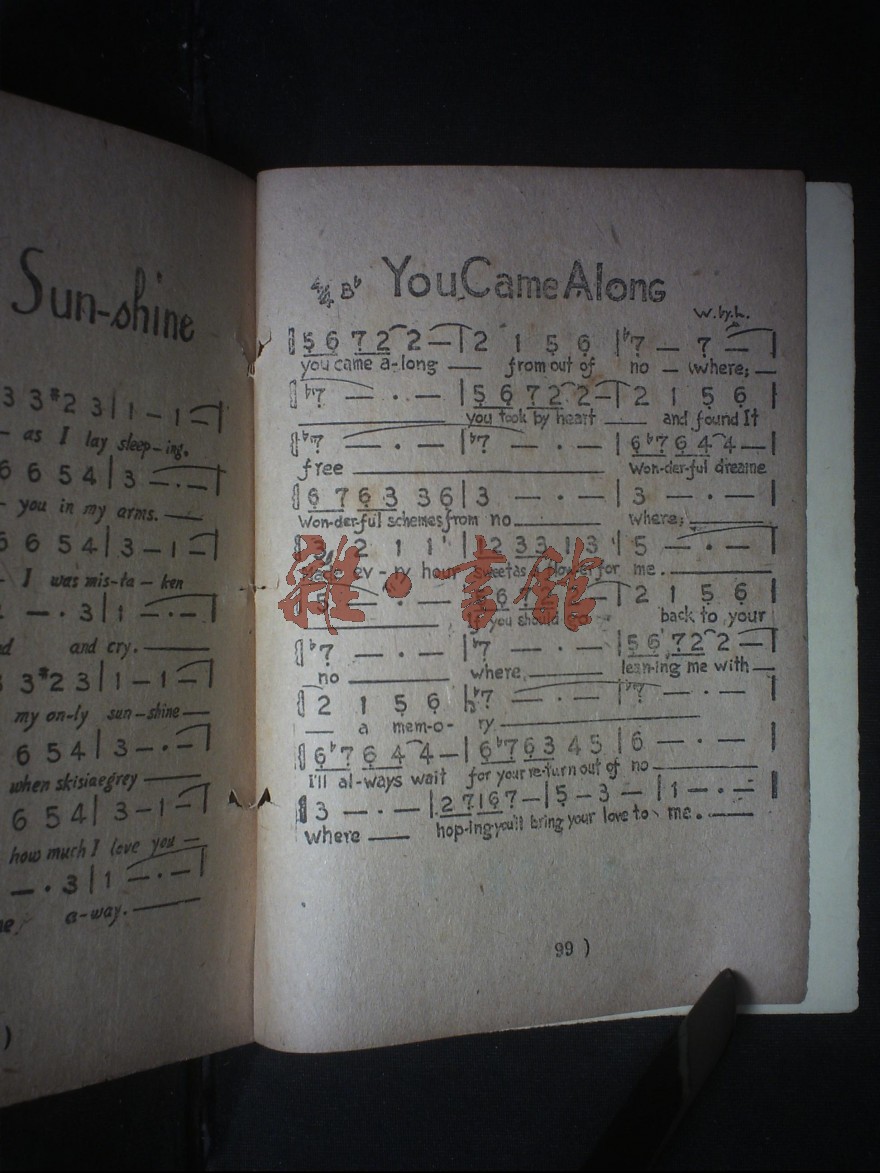 Sun-shine
3 3 #2 3 | 1 – 1 –
– as I lay sleep-ing.
6 6 5 4 | 3 – . –
– you in my arms. —
6 6 5 4 | 3 – 1 –
- I was mis-ta – ken
– . 3 | 1 – . –
and cry. —
3 #2 3 | 1 – 1 –
my on-ly sun-shine —
6 5 4 | 3 – . –
when skisiaegrey —
6 5 4 | 3 – 1 –
how much I love you —
– . 3 | 1 – . –
a-way. —
)
4/4 B♭ You Came Along
W. by. L.
| 5̣ 6̣ 7̣ 2 2 – | 2 1 5̣ 6̣ | ♭7̣ – 7̣ – |
you came a-long — from out of no – where; —
| ♭7̣ – . – | 5̣ 6̣ 7̣ 2 2 – | 2 1 5̣ 6̣
— you took by heart — and found It
| ♭7̣ – . – | ♭7̣ – . – | 6̣ ♭7̣ 6̣ 4 4 – |
free — Won-der-ful dreame
| 6̣ 7̣ 6̣ 3 3 6̣ | 3 – . – | 3 – . – |
Won-der-ful schemes from no — where; —
2 1 1 | 2 3 3 1 3 | 5 – . – |
ev – ry hour sweet as for me. —
| 5 – . – | 2 1 5̣ 6̣ |
— If you should go back to your
| ♭7̣ – . – | ♭7̣ – . – | 5̣ 6̣ 7̣ 2 2 – |
no — where, — lean-ing me with —
| 2 1 5̣ 6̣ | ♭7̣ – . – | ♭7̣ – . – |
— a mem-o- ry —
| 6̣ ♭7̣ 6̣ 4 4 – | 6̣ ♭7̣ 6̣ 3 4 5 | 6 – . – |
I'll al-ways wait for your re-turn out of no —
| 3 – . – | 2 7̣ 1 6̣ 7̣ – | 5̣ – 3 – | 1 – . – |
where — hop-ing you'll bring your love to me. —
99 )
雜·書館